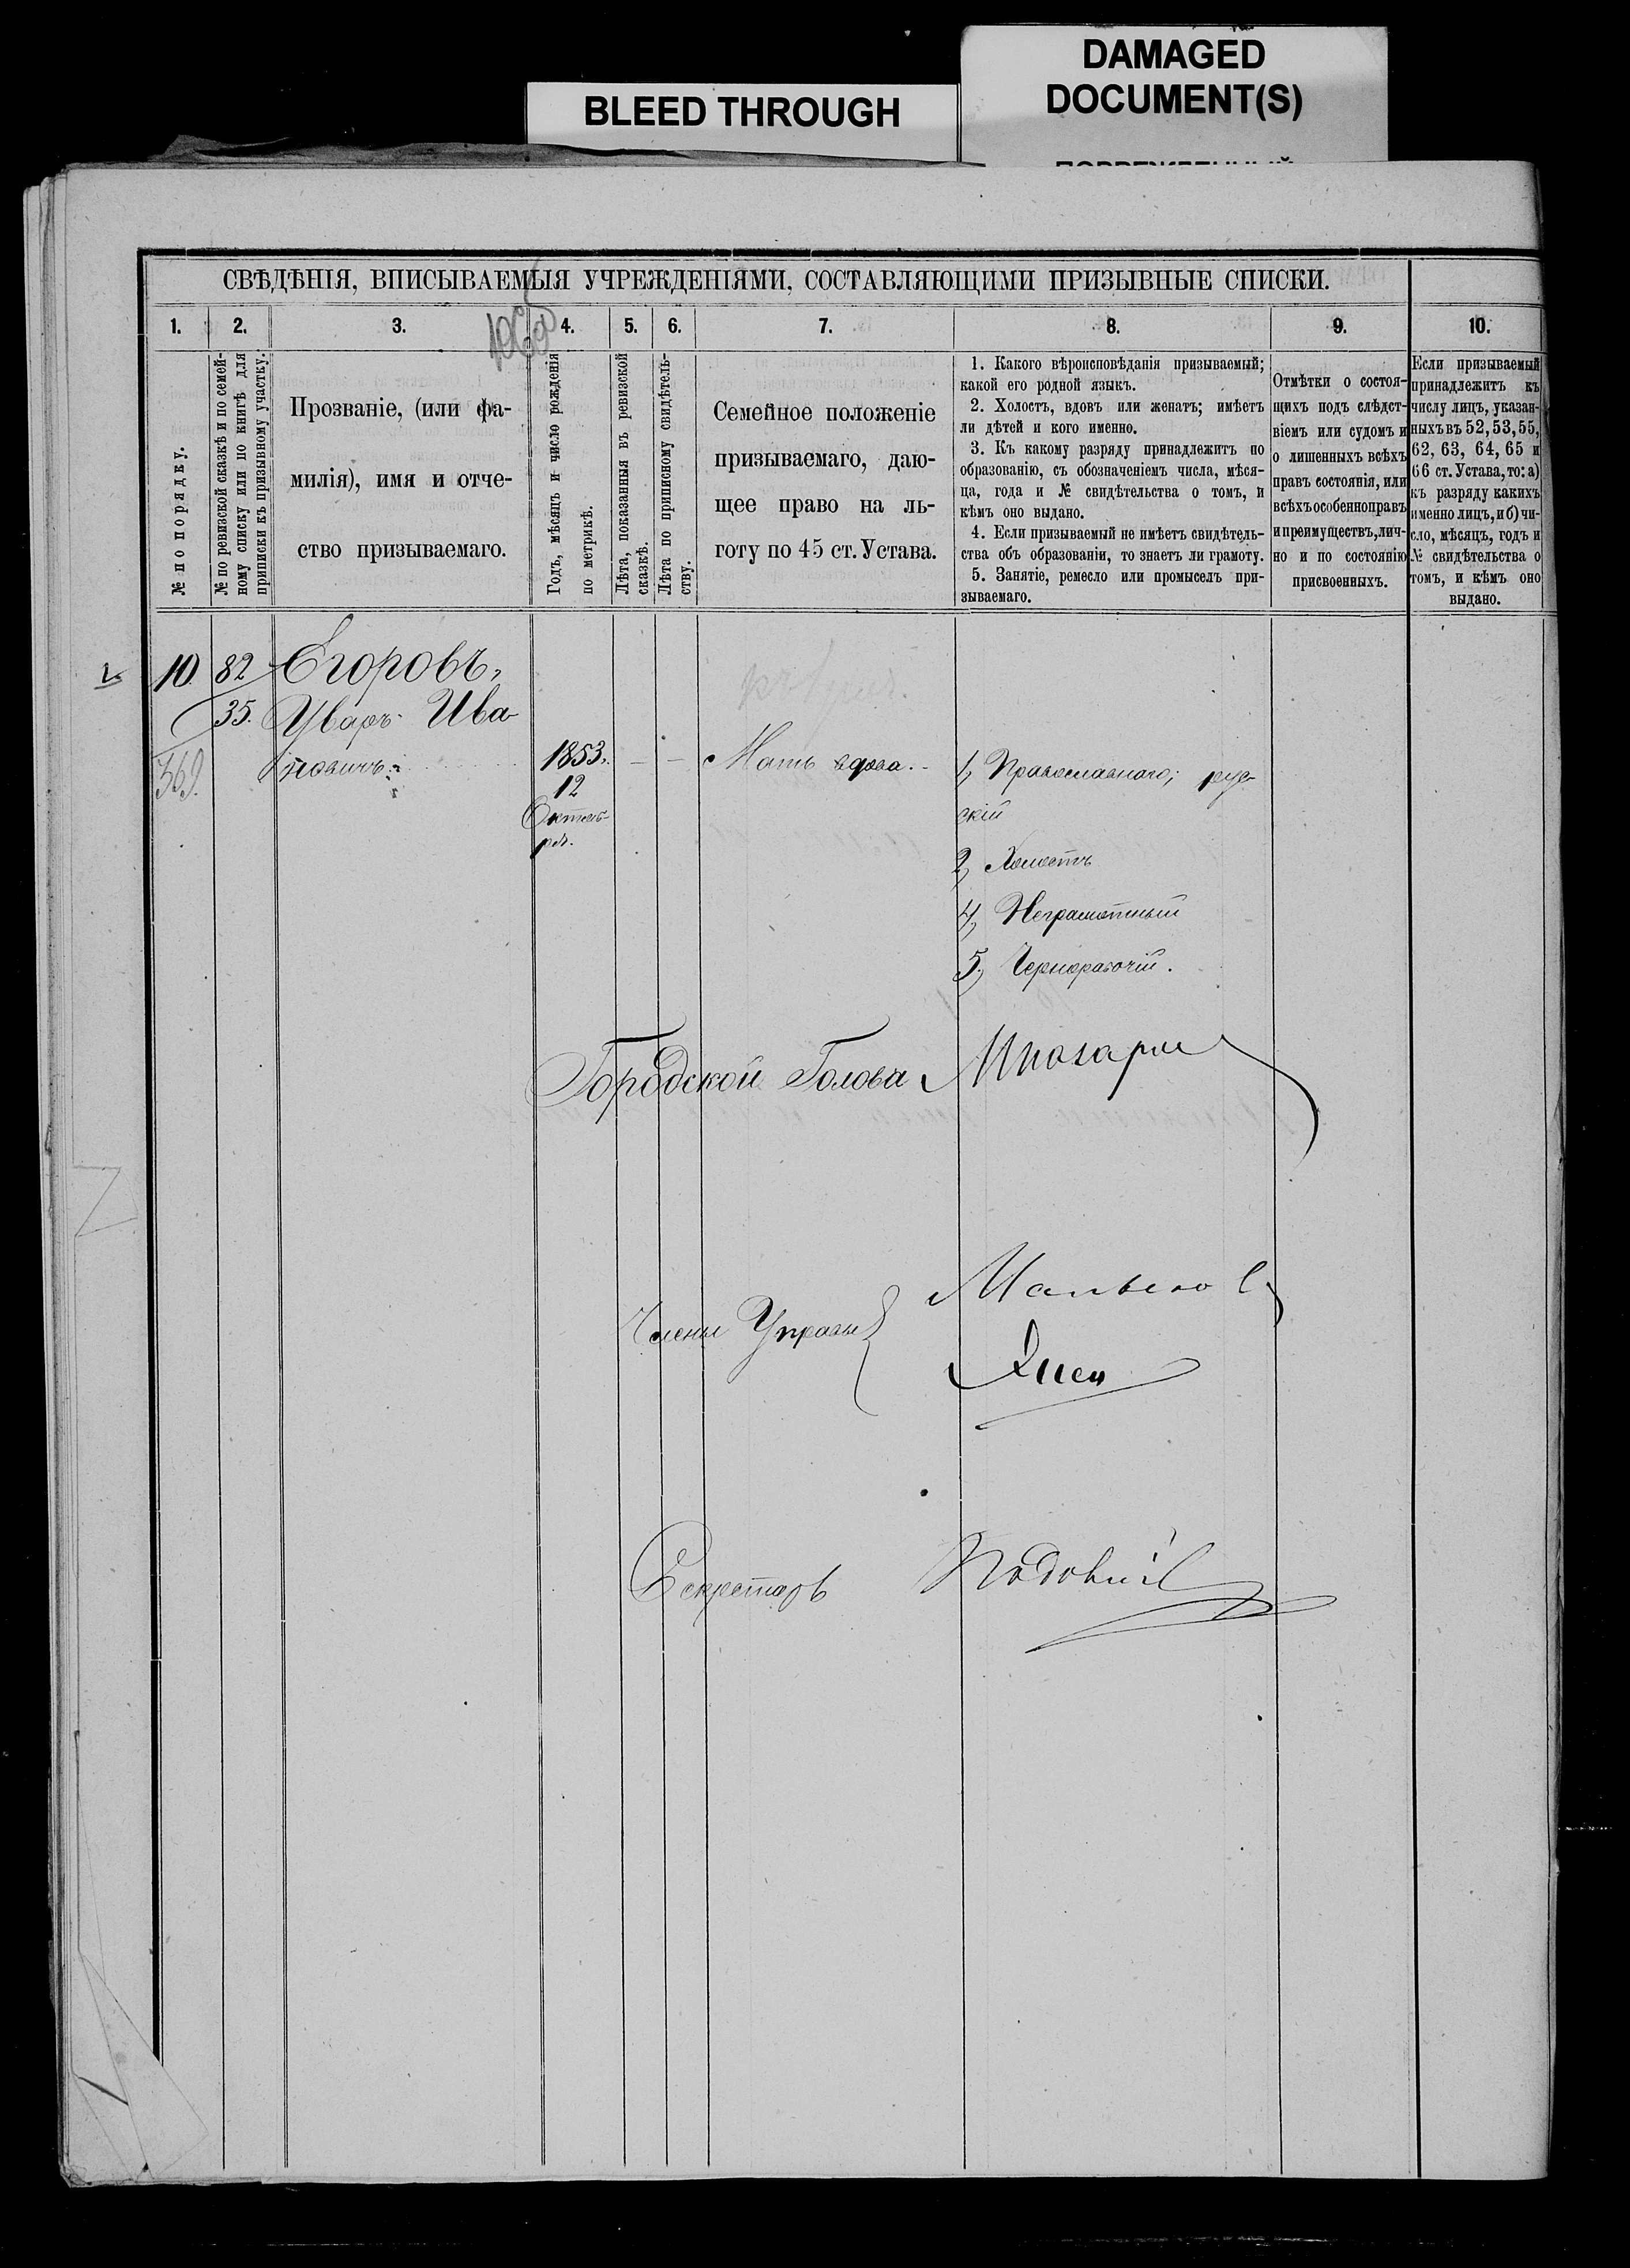 BLEED THROUGH
DAMAGED
DOCUMENT(S)
СВѢДѢНІЯ, ВПИСЫВАЕМЫЯ УЧРЕЖДЕНІЯМИ, СОСТАВЛЯЮЩИМИ ПРИЗЫВНЫЕ СПИСКИ.
1. 2. 3. 4. 5. 6. 7. 8. 9. 10.
№ по порядку.
№ по ревизской сказкѣ и по семей-
ному списку или по книгѣ для
приписки къ призывному участку.
Прозваніе, (или фа-
милія), имя и отче-
ство призываемаго.
Годъ, мѣсяцъ и число рожденія
по метрикѣ.
Лѣта, показанныя въ ревизской
сказкѣ.
Лѣта по приписному свидѣтель-
ству.
Семейное положеніе
призываемаго, даю-
щее право на ль-
готу по 45 ст. Устава.
1. Какого вѣроисповѣданія призываемый;
какой его родной языкъ.
2. Холостъ, вдовъ или женатъ; имѣетъ
ли дѣтей и кого именно.
3. Къ какому разряду принадлежитъ по
образованію, съ обозначеніемъ числа, мѣся-
ца, года и № свидѣтельства о томъ, и
кѣмъ оно выдано.
4. Если призываемый не имѣетъ свидѣтель-
ства объ образованіи, то знаетъ ли грамоту.
5. Занятіе, ремесло или промыселъ при-
зываемаго.
Отмѣтки о состоя-
щихъ подъ слѣдст-
віемъ или судомъ и
о лишенныхъ всѣхъ
правъ состоянія, или
всѣхъ особенно правъ
и преимуществъ, лич-
но и по состоянію
присвоенныхъ.
Если призываемый
принадлежитъ къ
числу лицъ, указан-
ныхъ въ 52, 53, 55,
62, 63, 64, 65 и
66 ст. Устава, то: а)
къ разряду какихъ
именно лицъ, и б) чи-
сло, мѣсяцъ, годъ и
№ свидѣтельства о
томъ, и кѣмъ оно
выдано.
10. 82 Егоровъ,
35. Уваръ Ива-
новичъ
369.
1853.
12
Октяб-
ря.
— —
Мать вдова.
1, Православнаго; рус-
скій
2, Холостъ
4, Неграмотный
5, Чернорабочій.
Городской Голова
Члены Управы
Секретарь